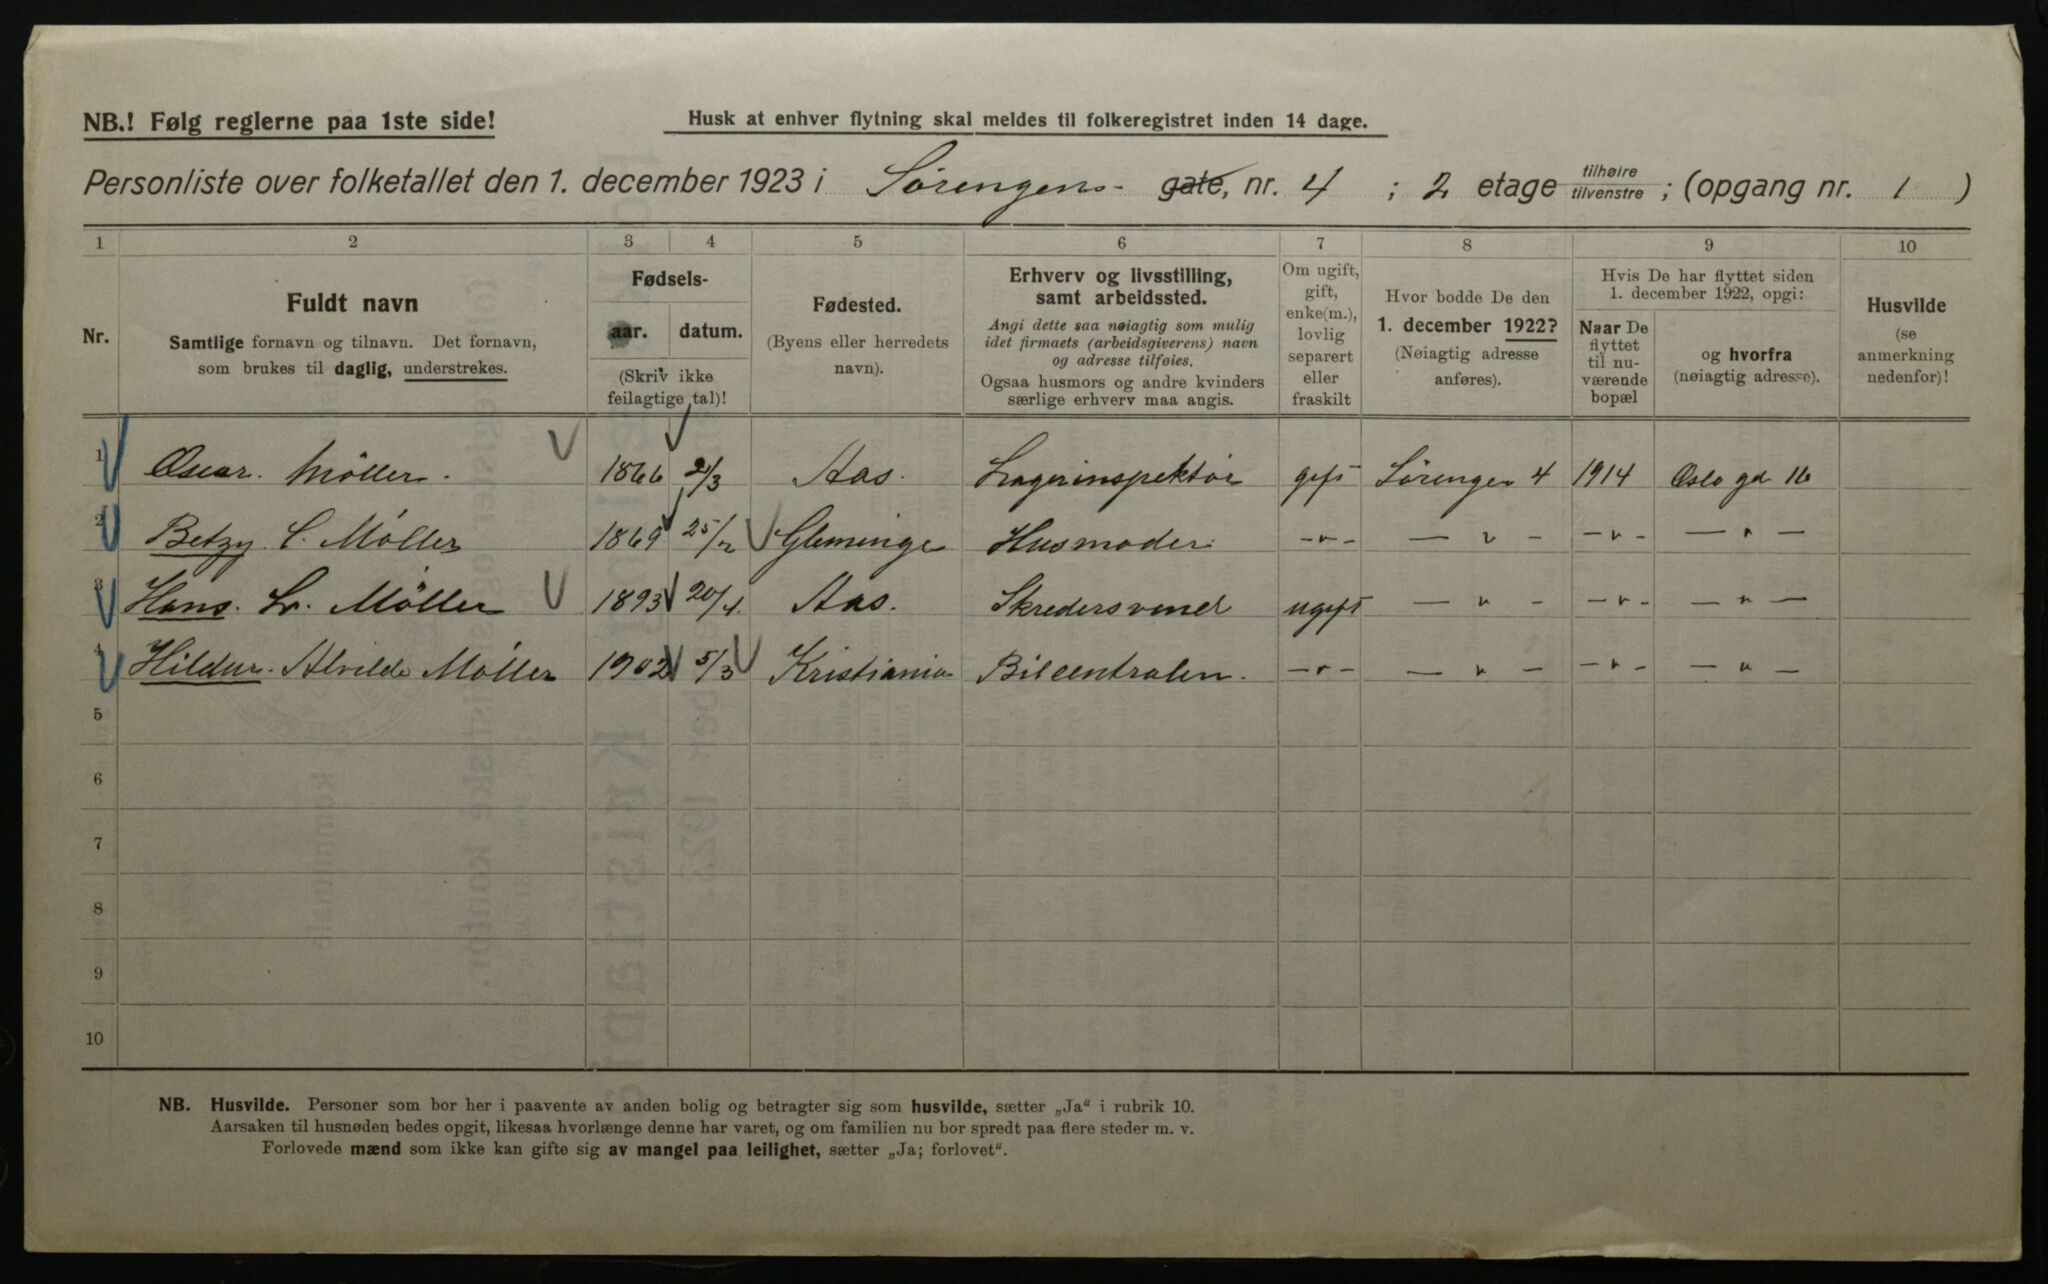 NB.! Følg reglerne paa 1ste side!
Husk at enhver flytning skal meldes til folkeregistret inden 14 dage.
Personliste over folketallet den 1. december 1923 i Sørengens- gate, nr. 4 ; 2 etage tilhøire tilvenstre ; (opgang nr. 1 )
1 2 3 4 5 6 7 8 9 10
Nr.
Fuldt navn
Samtlige fornavn og tilnavn. Det fornavn,
som brukes til daglig, understrekes.
Fødsels-
aar. datum.
(Skriv ikke
feilagtige tal)!
Fødested.
(Byens eller herredets
navn).
Erhverv og livsstilling,
samt arbeidssted.
Angi dette saa nøiagtig som mulig
idet firmaets (arbeidsgiverens) navn
og adresse tilføies.
Ogsaa husmors og andre kvinders
særlige erhverv maa angis.
Om ugift,
gift,
enke(m.),
lovlig
separert
eller
fraskilt
Hvor bodde De den
1. december 1922?
(Nøiagtig adresse
anføres).
Hvis De har flyttet siden
1. december 1922, opgi:
Naar De
flyttet
til nu-
værende
bopæl
og hvorfra
(nøiagtig adresse).
Husvilde
(se
anmerkning
nedenfor)!
1 Oscar. Møller. 1866 2/3 Aas. Lagerinspektør gift Sørengen 4 1914 Oslo gd 16
2 Betzy C. Møller 1869 25/2 Gleminge Husmoder -"- — " - -"- — " —
3 Hans. L. Møller 1893 20/4. Aas. Skredersvend ugift — " - -"- — " —
4 Hildur. Alvilde Møller 1902 5/3 Kristiania Bilcentralen. -"- — " - -"- — " —
5
6
7
8
9
10
NB. Husvilde. Personer som bor her i paavente av anden bolig og betragter sig som husvilde, sætter „Ja“ i rubrik 10.
Aarsaken til husnøden bedes opgit, likesaa hvorlænge denne har varet, og om familien nu bor spredt paa flere steder m. v.
Forlovede mænd som ikke kan gifte sig av mangel paa leilighet, sætter „Ja; forlovet“.